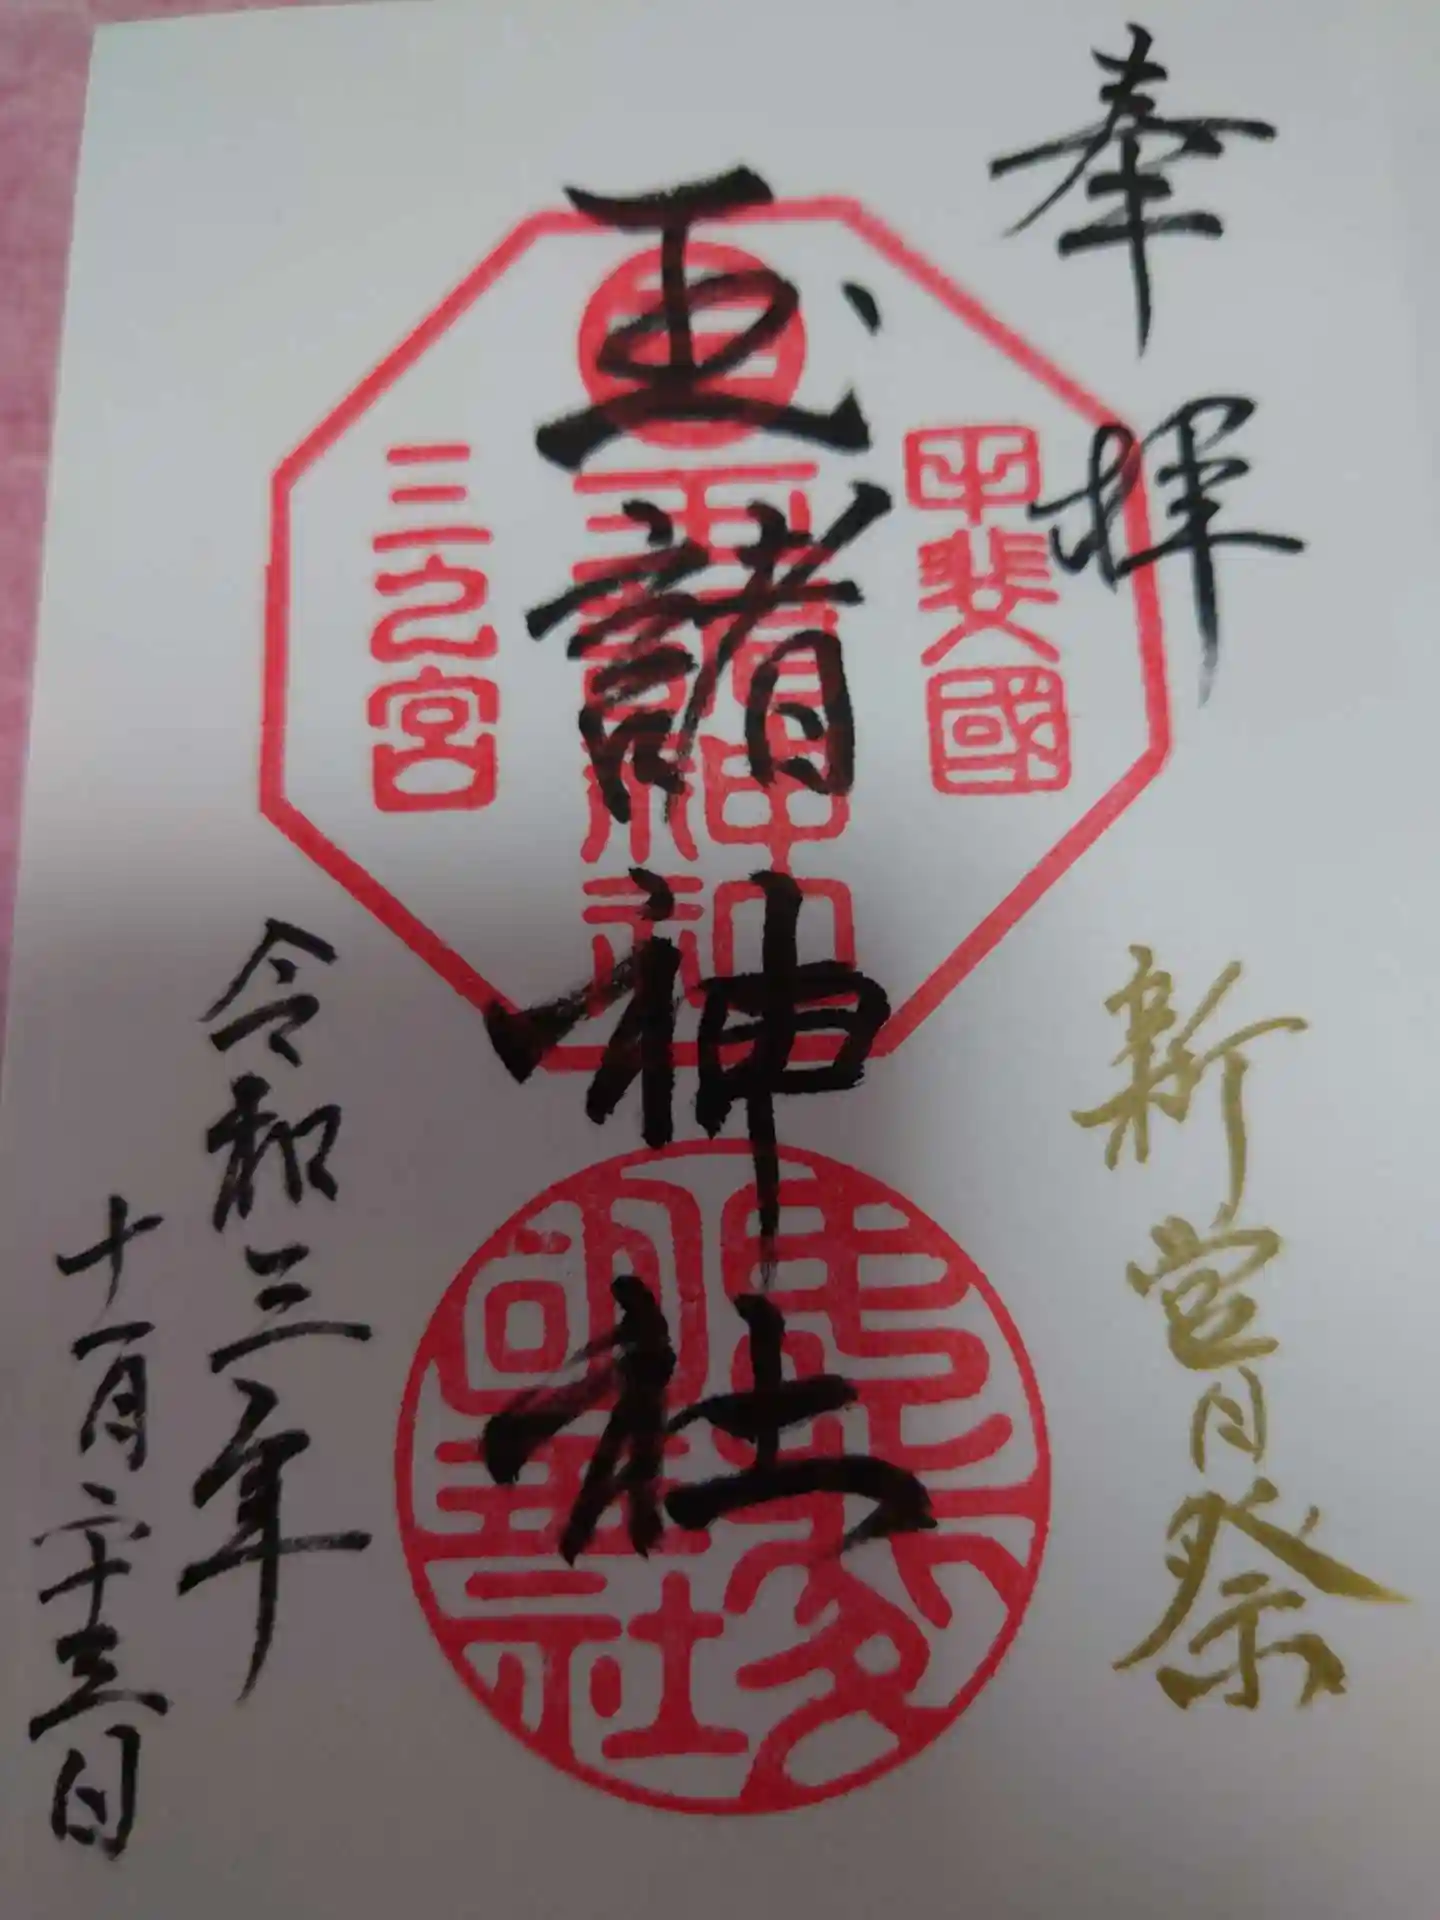 奉拝
新営月祭
甲斐國
玉諸神社
玉諸神社
三之宮
令和三年
十一月二十三日